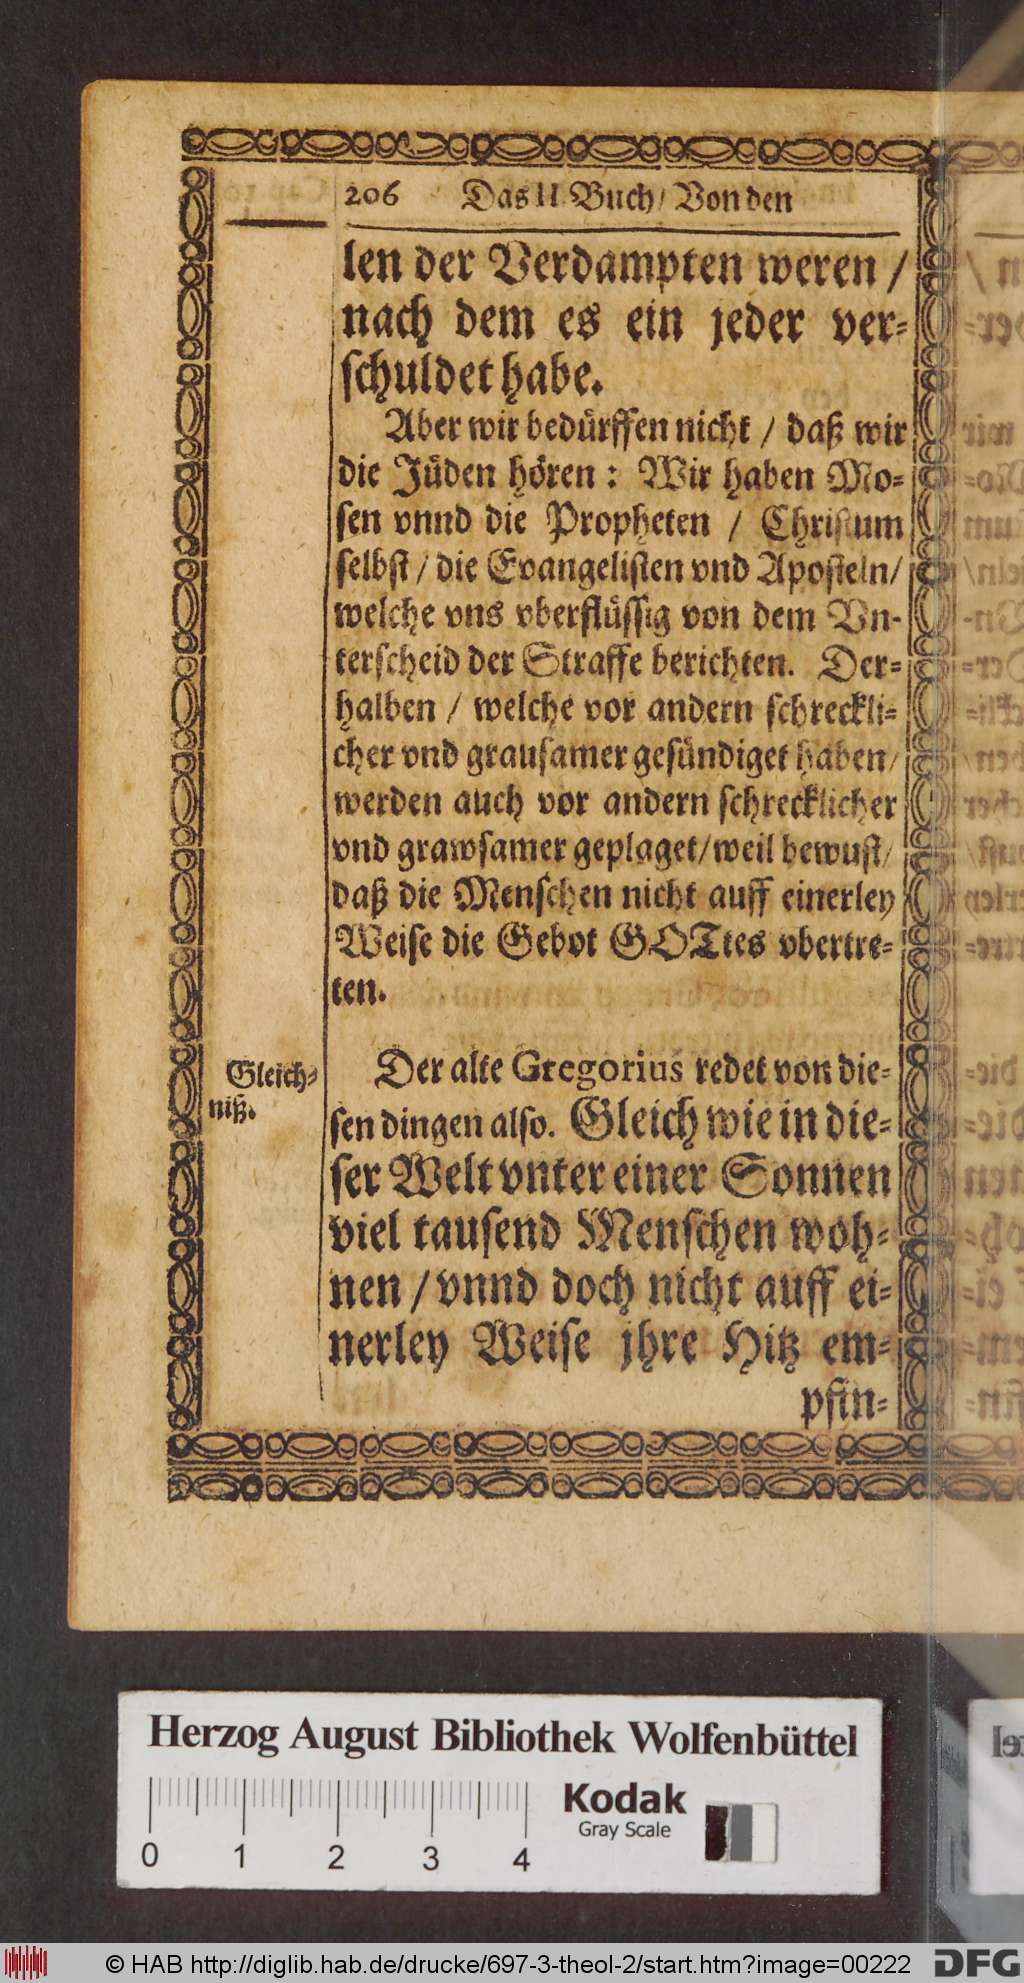 206 Das II. Buch / Von den
len der Verdampten weren /
nach dem es ein jeder ver-
schuldet habe.
Aber wir bedürffen nicht / daß wir
die Jüden hören : Wir haben Mo-
sen vnnd die Propheten / Christum
selbst / die Evangelisten vnd Aposteln /
welche vns vberflüssig von dem Vn-
terscheid der Straffe berichten. Der-
halben / welche vor andern schreckli-
cher vnd grausamer gesündiget haben /
werden auch vor andern schrecklicher
vnd grawsamer geplaget / weil bewust /
daß die Menschen nicht auff einerley
Weise die Gebot GOTtes vbertre-
ten.
Gleich-
niß.
Der alte Gregorius redet von die-
sen dingen also. Gleich wie in die-
ser Welt vnter einer Sonnen
viel tausend Menschen woh-
nen / vnnd doch nicht auff ei-
nerley Weise jhre Hitz em-
pfin-
Herzog August Bibliothek Wolfenbüttel
Kodak
Gray Scale
0 1 2 3 4
© HAB http://diglib.hab.de/drucke/697-3-theol-2/start.htm?image=00222
DFG